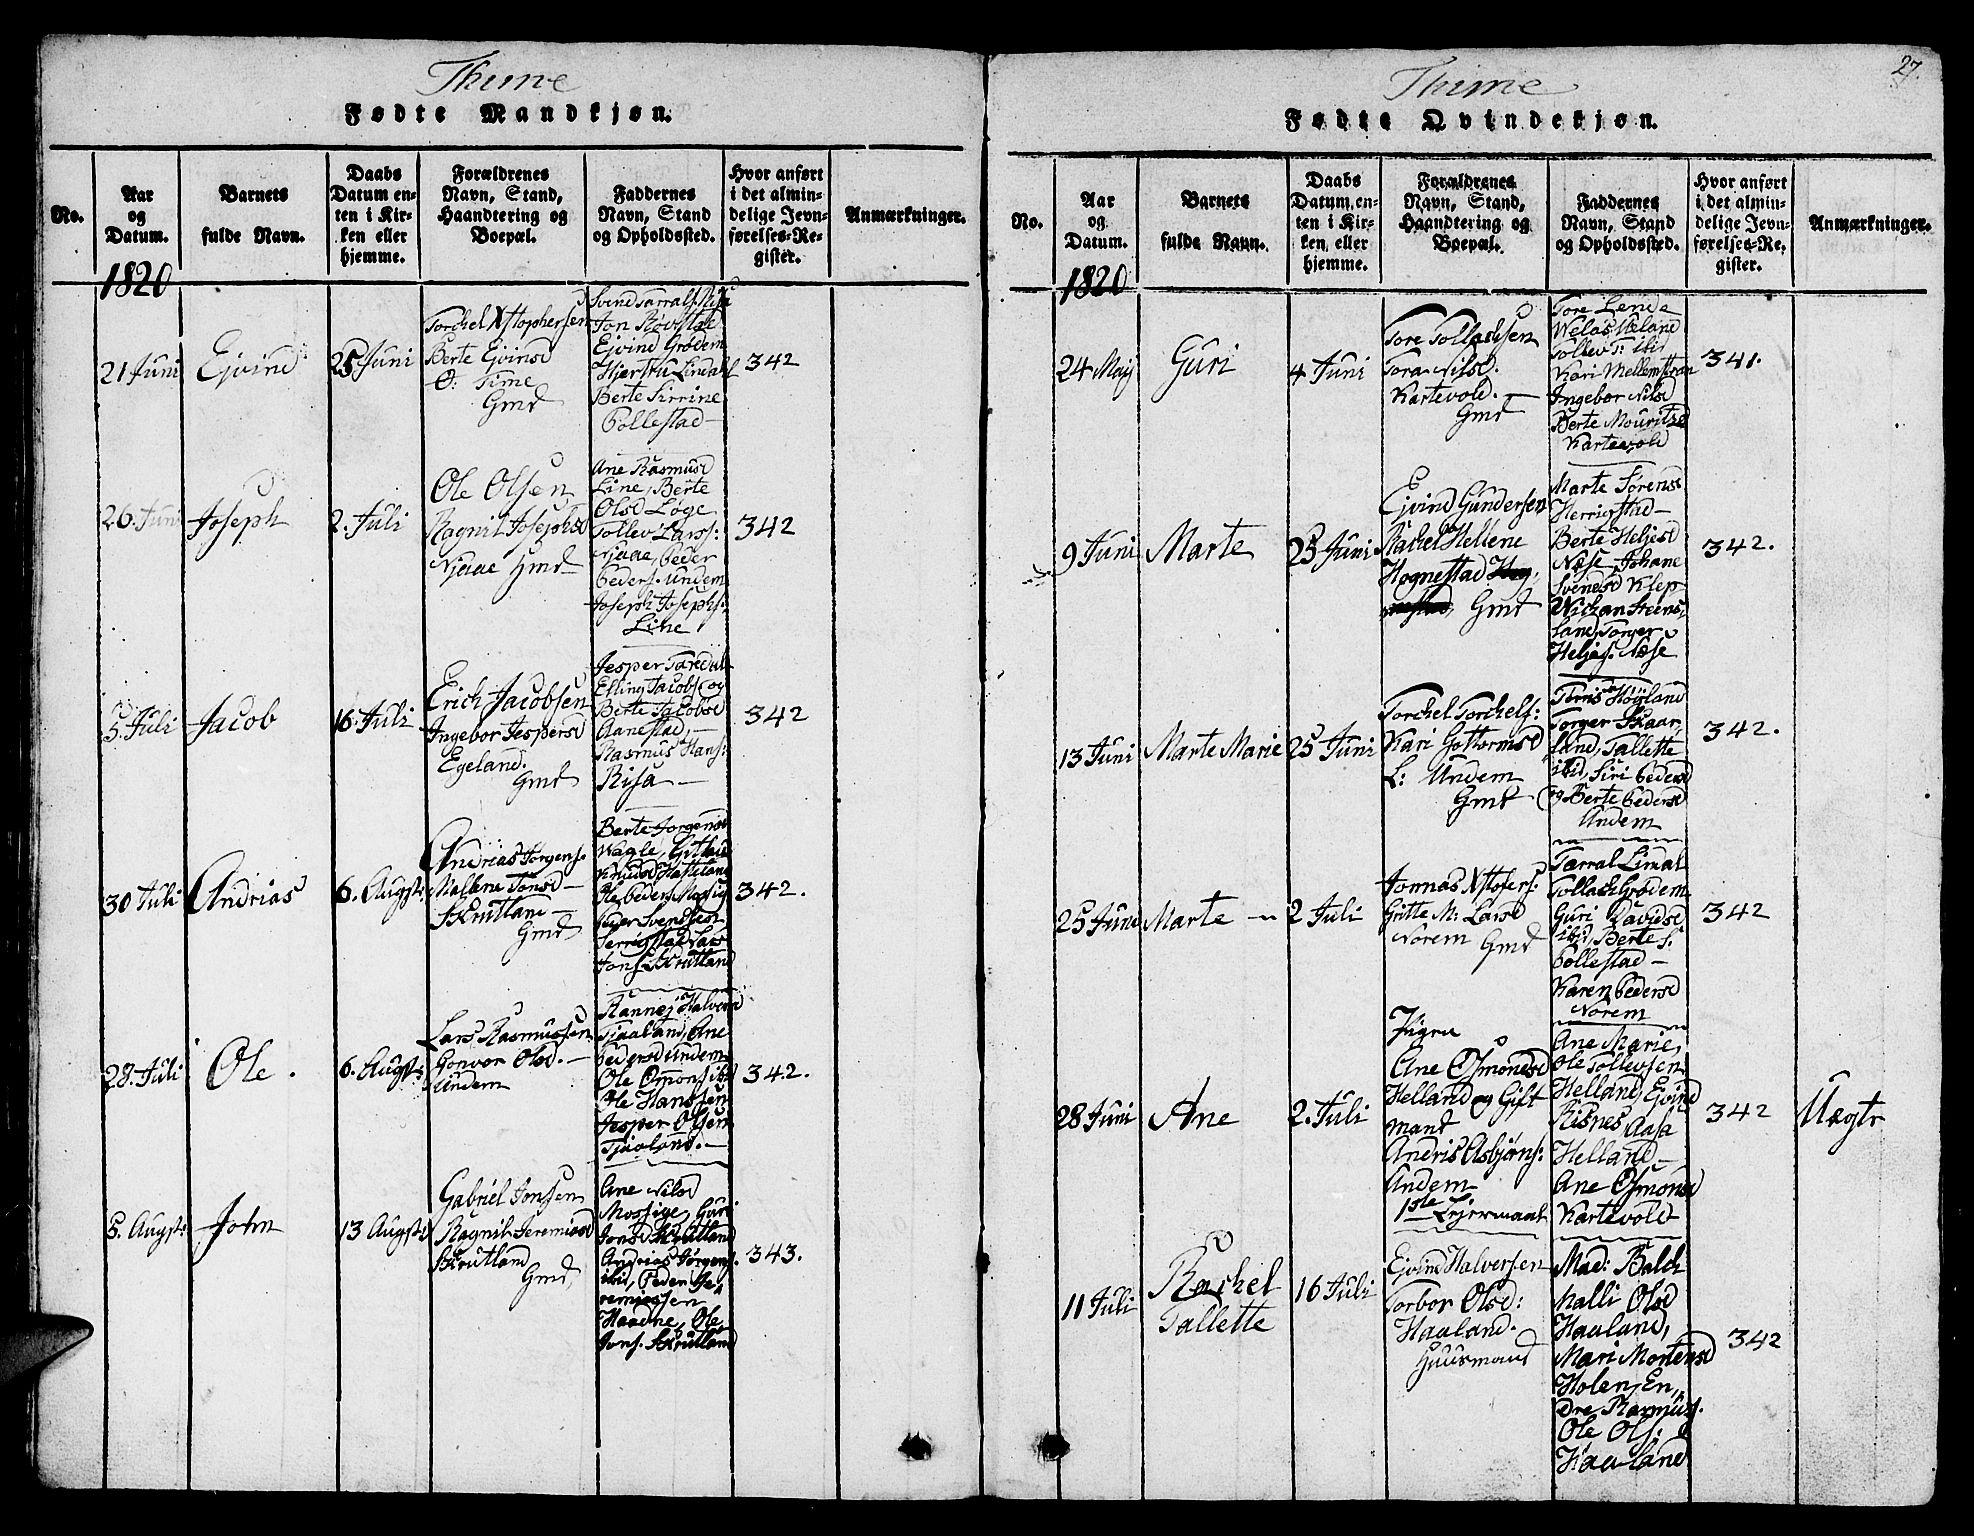 Thime
Fødte Mandkjøn.
No.
Aar og Datum.
Barnets fulde Navn.
Daabs Datum enten i Kirken eller hjemme.
Forældrenes Navn, Stand, Haandtering og Boepæl.
Faddernes Navn, Stand og Opholdssted.
Hvor anført i det almindelige Jevnførelses-Register.
Anmærkninger.
1820
21 Juni
Ejvind
25 Juni
Torchel Xstophersen
Berte Ejvinsd
O: Time
Gmd
Svind Tarrals. Risa
Jon Røvstae
Ejvind Grødem
Lindahl
Berte Sirrine
Pollestad
342
26. Juni
Joseph
2. Juli
Ole Olsen
Ragnil Josephsd
Njaae Gmd
Ane Rasmusd
Line, Berte
Olsd Løge
Tollev Lars:
Njaae, Peder
Peders. Undem
Joseph Josephs:
Line
342
5 Juli
Jacob
16 Juli
Erich Jacobsen
Ingebor Jespersd
Egeland.
Gmd
Jesper Taredal
Elling Jacobs og
Berte Jacobsd
Aanestad,
Rasmus Hans:
Risa
342
30 Juli
Andrias
6. Augst:
Andrias Jorgens.
Mallene Jonsd
Skrutland
Gmd
Berte Jorgensd
Wagle, Gitlue
Knudsd Hatteland
Ole Peders. Mossig
Peder Svends
Serrigstad Lars
Jons. Skrutland
342.
28. Juli
Ole.
6. Augst:
Lars Rasmussen
Gonvor Olsd.
Undem
Rannej Halvorsd
Tjaaland, Ane
Pedersd Undem
Ole Omons ibd
Ole Hanssen
Jesper Olsen
Tjaaland.
342.
5. Augst:
John
13 Augst:
Gabriel Jonsen
Ragnil Jeremiasd
Skrutland
Gmd,
Ane Nilsd
Mossige, Guri
Jonsd Skrutland
Andreas Jørgens.
ibid, Peder Je-
remiassen
Haadne, Ole
Jons. Skrutland
343.
27.
Thime
Fødte Qvindekjøn.
No.
Aar og Datum.
Barnets fulde Navn.
Daabs Datum, enten i Kirken, eller hjemme.
Forældrenes Navn, Stand, Haandtering og Boepæl.
Faddernes Navn, Stand og Opholdssted.
Hvor anført i det almindelige Jevnførelses-Register.
Anmærkninger.
1820
24 Maij
Guri
4 Juni
Tore Tollachsen
Tora Nilsd.
Kartevold.
Gmd
Tore Lende
Helland
Tollev T: ibid
Kari Mellemstran
Ingebor Nilsd
Berte Mouritsd
Kartevold
341.
9 Juni
Marte
25 Juni
Ejvind Gundersen
Rachel Hellene
Hognestad
Gmd
Marte Sørensd
Herrigstad
Berte Heljesd
Næse, Johane
Svensd Klep
Steens-
land, Torger
Heljes. Næse
342.
13 Juni
Marte Marie
25 Juni
Torchel Torchels:
Kari Gottormsd
L: Undem
Gmd
Torris Høyland
Torger Skaar-
land, Tallette
ibid, Siri Pedersd
og Berte Pedersd
Undem
342.
25 Juni
Marte
2 Juli
Jonnas Xstofers.
Gritte M: Larsd
Norem Gmd
Tarral Lindal
Tollach Grødem
Guri Davidsd
ibid, Berte S.
Pollestad
Karen Pedersd
Norem
342
28 Juni
Ane
2. Juli
Pigen
Ane Osmondsd
Helland og Gift
mand
Andris Asbjørns:
Undem
1ste Lejermaal
Ane Marie,
Ole Tollevsen
Helland, Ejvind
Risnes, Aasa
Helland
Ane Osmonsd
Kartevold
342
Uægte
11 Juli
Rachel
Tallette
16 Juli
Ejvind Halversen
Torbor Olsd:
Haaland.
Huusmand
Mad: Balch
Malli Olsd
Haaland,
Mari Mortensd
Holen, En-
dre Rasmus.
Ole Ols.
Haaland
342